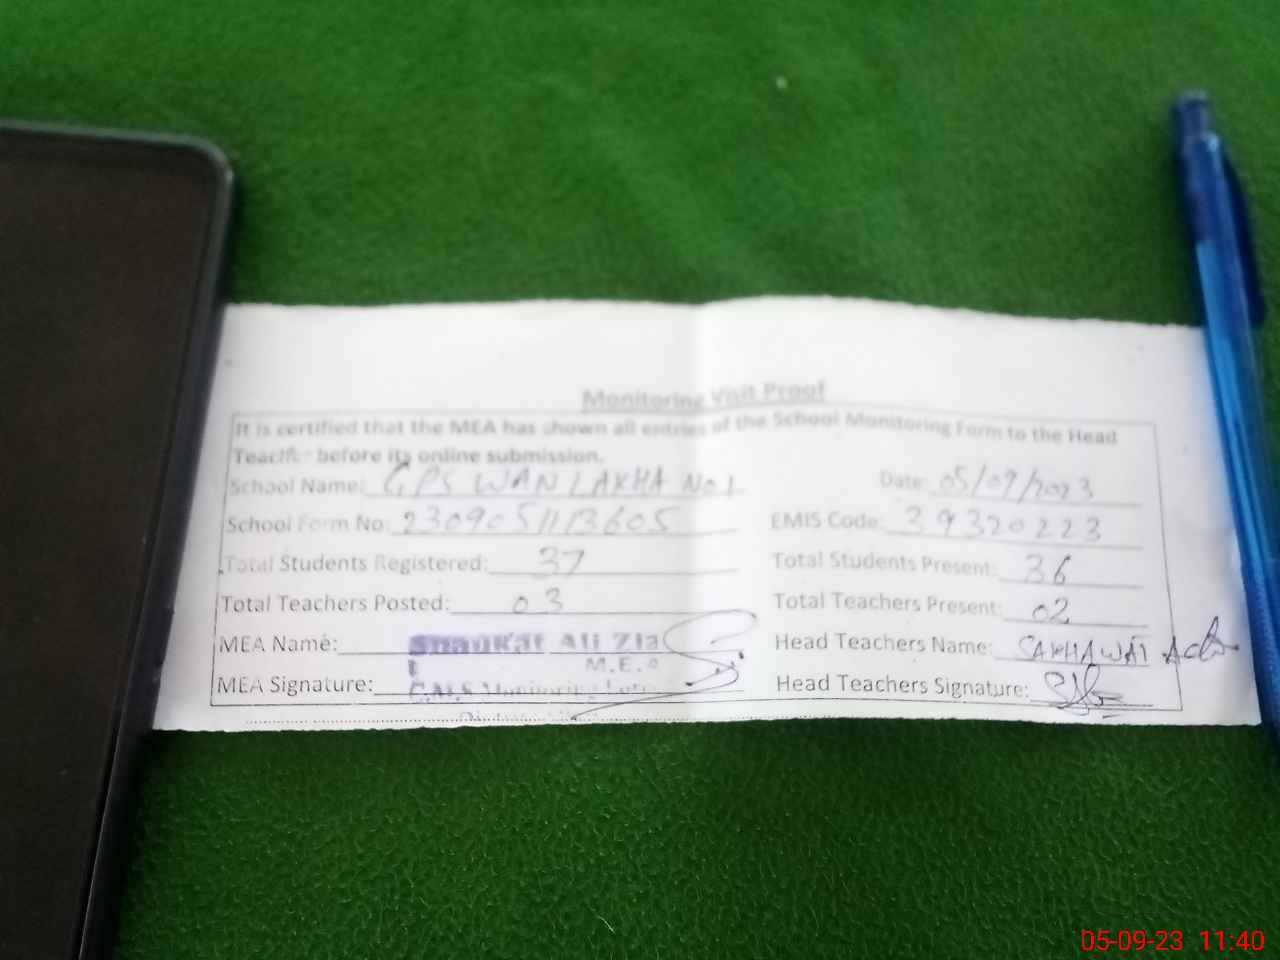 Monitoring Visit Proof
It is certified that the MEA has shown all entries of the School Monitoring Form to the Head
Teacher before its online submission.
School Name: GPS WAN LAKHA No 1 Date: 05/09/2023
School Form No: 2309051113605 EMIS Code: 39320223
Total Students Registered: 37 Total Students Present: 36
Total Teachers Posted: 03 Total Teachers Present: 02
MEA Name: Shaukat Ali Zia Head Teachers Name: SAKHAWAT
M.E.A
MEA Signature: Head Teachers Signature:
05-09-23 11:40